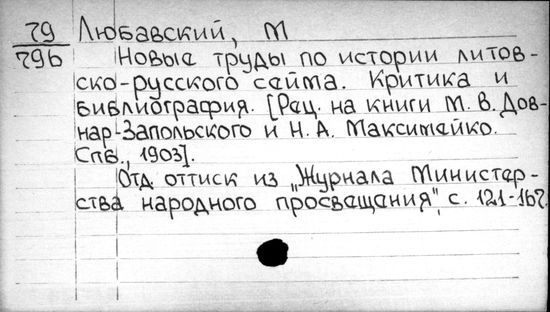 79 Любавский, М
796 Новые труды по истории литов-
ско-русского сейма. Критика и
библиография. [Рец. на книги М. В. Дов-
нар-Запольского и Н. А. Максимейко.
Спв., 1903].
Отд. оттиск из „Журнала Министер-
ства народного просвещения", с. 121-167.